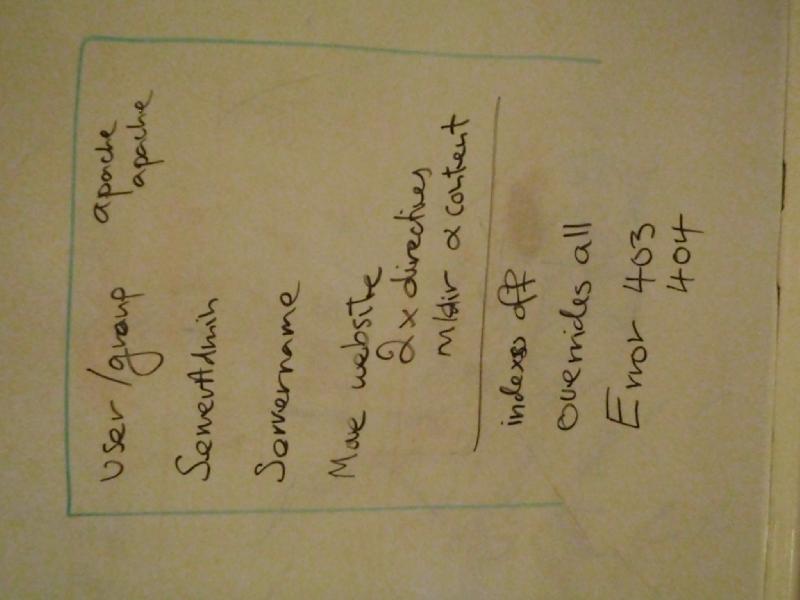 User/group apache
apache
ServerAdmin
Servername
Move website
2 x directives
Mkdir & content
indexes off
overrides all
Error 403
404